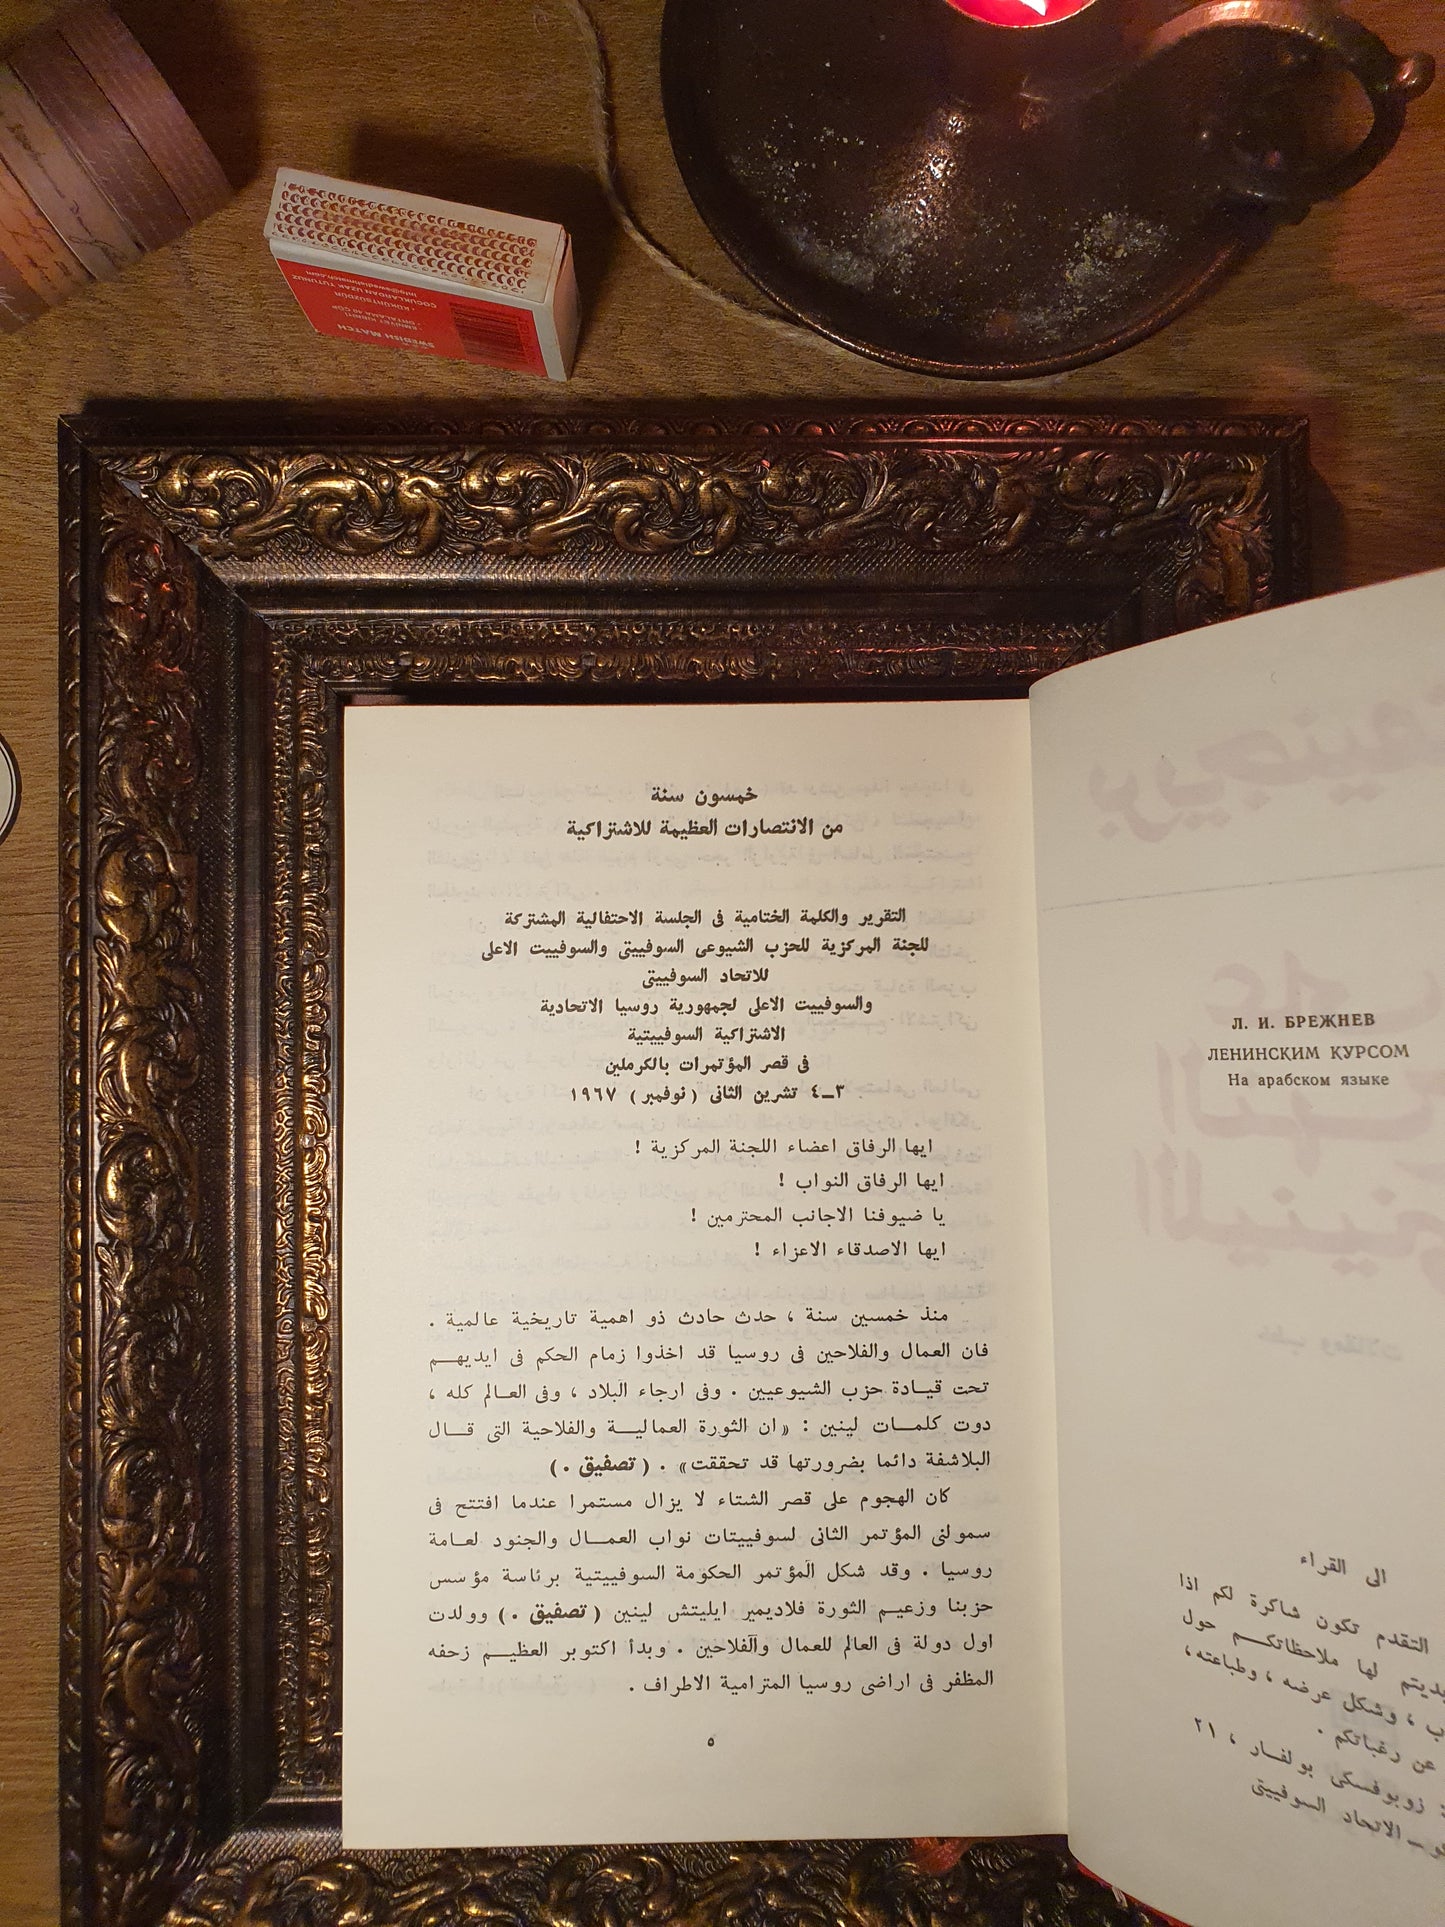 SWEDISH MATCH
EMNİYET KİBRİTİ
• ORTALAMA 40 ÇÖP
• KÜKÜRTSÜZDÜR
ÇOCUKLARDAN UZAK TUTUNUZ
info@swedishmatch.com
Л. И. БРЕЖНЕВ
ЛЕНИНСКИМ КУРСОМ
На арабском языке
الى القراء
التقدم تكون شاكرة لكم اذا
لها ملاحظاتكم حول
، وشكل عرضه ، وطباعته ،
عن رغباتكم .
: زوبوفسكى بولفار ، ٢١
ـ الاتحاد السوفييتى
خمسون سنة
من الانتصارات العظيمة للاشتراكية
التقرير والكلمة الختامية فى الجلسة الاحتفالية المشتركة
للجنة المركزية للحزب الشيوعى السوفييتى والسوفييت الاعلى
للاتحاد السوفييتى
والسوفييت الاعلى لجمهورية روسيا الاتحادية
الاشتراكية السوفييتية
فى قصر المؤتمرات بالكرملين
٣ـ٤ تشرين الثانى ( نوفمبر ) ١٩٦٧
ايها الرفاق اعضاء اللجنة المركزية !
ايها الرفاق النواب !
يا ضيوفنا الاجانب المحترمين !
ايها الاصدقاء الاعزاء !
منذ خمسين سنة ، حدث حادث ذو اهمية تاريخية عالمية .
فان العمال والفلاحين فى روسيا قد اخذوا زمام الحكم فى ايديهم
تحت قيادة حزب الشيوعيين . وفى ارجاء البلاد ، وفى العالم كله ،
دوت كلمات لينين : «ان الثورة العمالية والفلاحية التى قال
البلاشفة دائما بضرورتها قد تحققت» . ( تصفيق . )
كان الهجوم على قصر الشتاء لا يزال مستمرا عندما افتتح فى
سمولنى المؤتمر الثانى لسوفييتات نواب العمال والجنود لعامة
روسيا . وقد شكل المؤتمر الحكومة السوفييتية برئاسة مؤسس
حزبنا وزعيم الثورة فلاديمير ايليتش لينين ( تصفيق . ) وولدت
اول دولة فى العالم للعمال والفلاحين . وبدأ اكتوبر العظيم زحفه
المظفر فى اراضى روسيا المترامية الاطراف .
٥